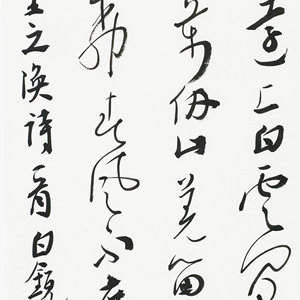 遠上白雲間
萬仞山羌笛
柳春風不度
王之渙詩一首白